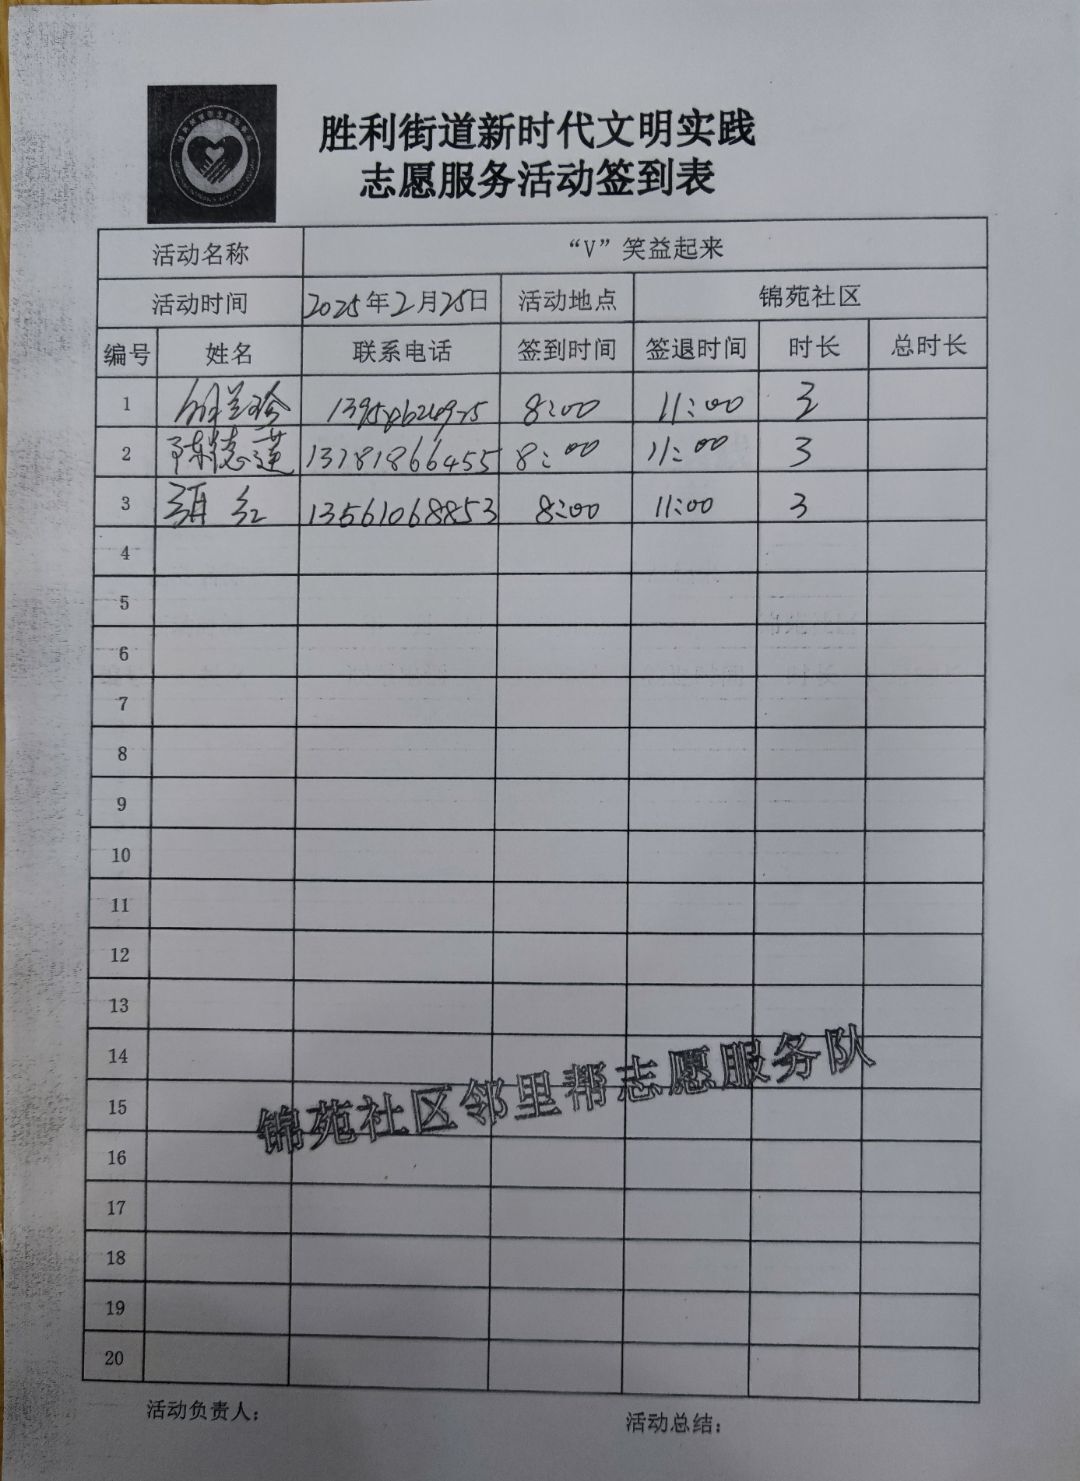 胜利街道新时代文明实践
志愿服务活动签到表
活动名称 “V”笑益起来
活动时间 2025年2月25日 活动地点 锦苑社区
编号 姓名 联系电话 签到时间 签退时间 时长 总时长
1 8:00 11:00 3
2 陈德莲 13181866455 8:00 11:00 3
3 红 13561068853 8:00 11:00 3
4
5
6
7
8
9
10
11
12
13
14
15
16
17
18
19
20
锦苑社区邻里帮志愿服务队
活动负责人:
活动总结: